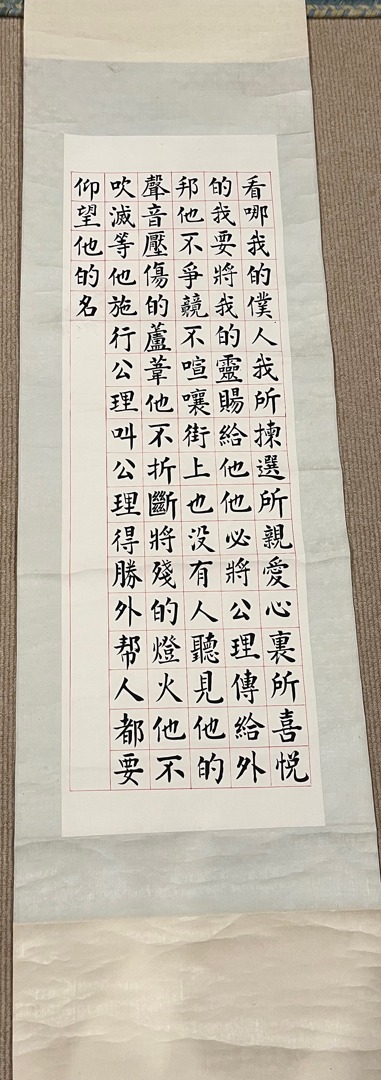 看哪我的僕人我所揀選所親愛心裏所喜悦
的我要將我的靈賜給他他必將公理傳給外
邦他不爭競不喧嚷街上也没有人聽見他的
聲音壓傷的蘆葦他不折斷將殘的燈火他不
吹滅等他施行公理叫公理得勝外帮人都要
仰望他的名